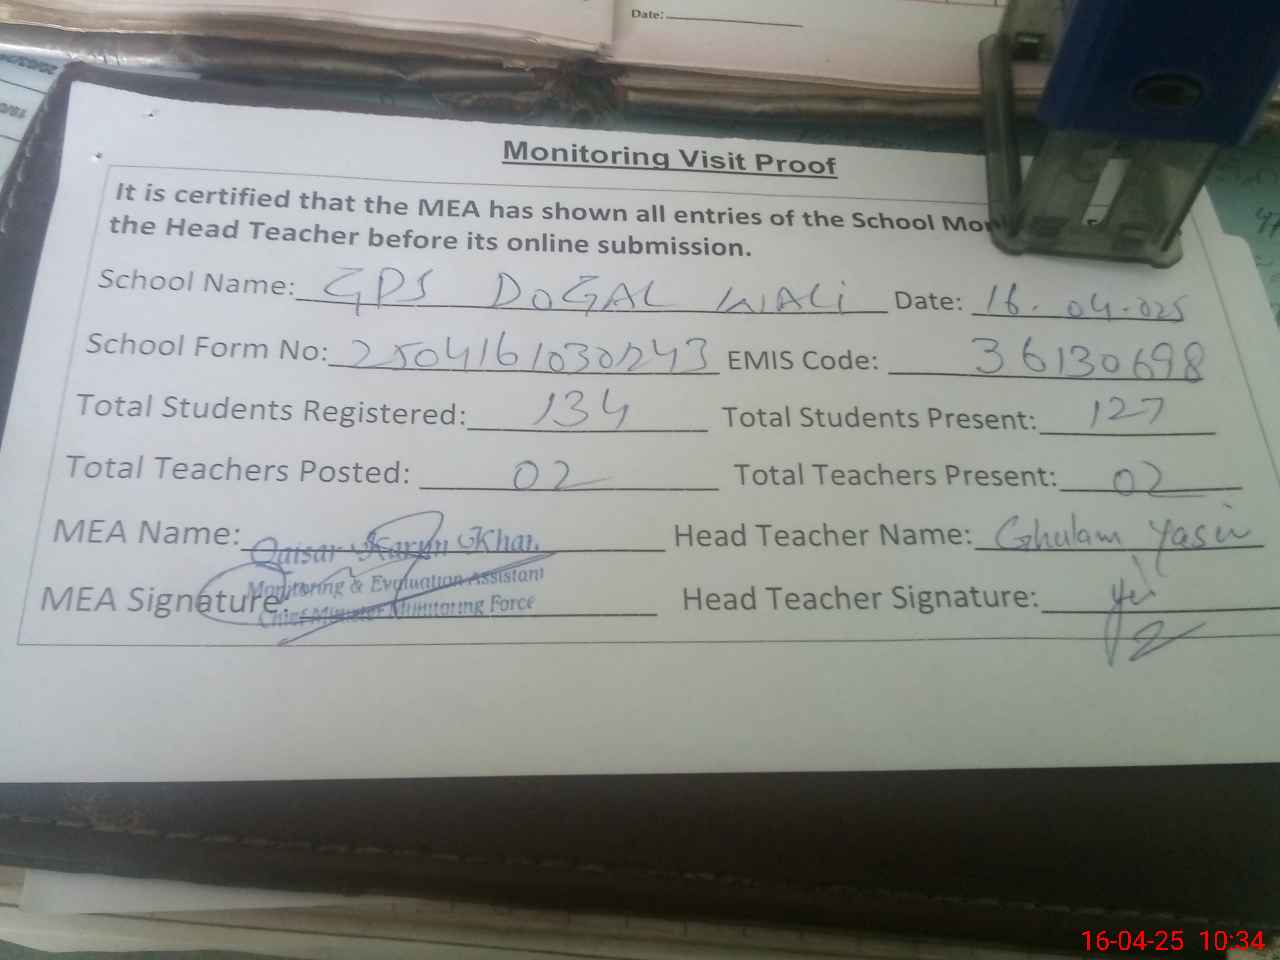 Date:
Monitoring Visit Proof
It is certified that the MEA has shown all entries of the School
the Head Teacher before its online submission.
School Name: GPS DOGAL WALi Date: 16.04.025
School Form No: 2504161030243 EMIS Code: 36130698
Total Students Registered: 134 Total Students Present: 127
Total Teachers Posted: 02 Total Teachers Present: 02
MEA Name: Qaisar Karim Khan Head Teacher Name: Ghulam Yasin
Monitoring & Evaluation Assistant
MEA Signature: Head Teacher Signature:
Chief Minister Monitoring Force
16-04-25 10:34